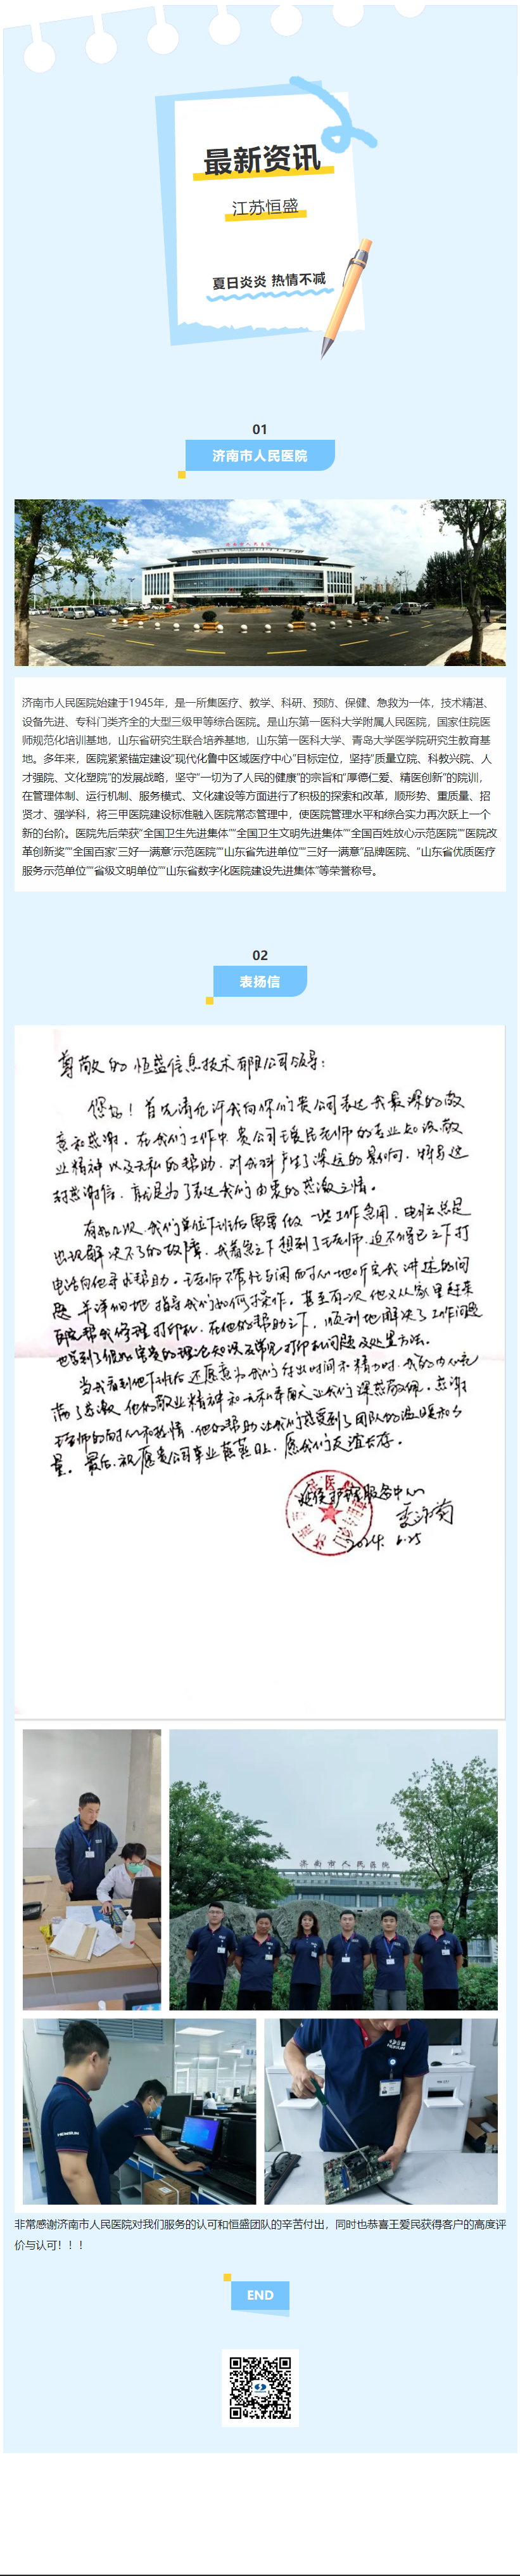 最新资讯
江苏恒盛
夏日炎炎 热情不减
01
济南市人民医院
济南市人民医院
济南市人民医院始建于1945年，是一所集医疗、教学、科研、预防、保健、急救为一体，技术精湛、
设备先进、专科门类齐全的大型三级甲等综合医院。是山东第一医科大学附属人民医院，国家住院医
师规范化培训基地，山东省研究生联合培养基地，山东第一医科大学、青岛大学医学院研究生教育基
地。多年来，医院紧紧锚定建设“现代化鲁中区域医疗中心”目标定位，坚持“质量立院、科教兴院、人
才强院、文化塑院”的发展战略，坚守“一切为了人民的健康”的宗旨和“厚德仁爱、精医创新”的院训，
在管理体制、运行机制、服务模式、文化建设等方面进行了积极的探索和改革，顺形势、重质量、招
贤才、强学科，将三甲医院建设标准融入医院常态管理中，使医院管理水平和综合实力再次跃上一个
新的台阶。医院先后荣获“全国卫生先进集体”“全国卫生文明先进集体”“全国百姓放心示范医院”“医院改
革创新奖”“全国百家‘三好一满意’示范医院”“山东省先进单位”“三好一满意”品牌医院、“山东省优质医疗
服务示范单位”“省级文明单位”“山东省数字化医院建设先进集体”等荣誉称号。
02
表扬信
尊敬的恒盛信息技术有限公司领导：
您好！首先请允许我向你们贵公司表达我最深的敬
意和感谢。在我们工作中，贵公司王爱民老师的专业知识、敬
业精神以及无私的帮助，对我科产生了深远的影响，特写这
封感谢信，有就是为了表达我们由衷的感激之情。
有好几次，我们单位下班后需要做一些工作急用，电脑总是
出现解决不了的故障，我着急之下想到了王老师，迫不得已之下打
电话向他寻求帮助。王老师不管忙与闲的耐心地听完我讲述的问
题，并详细地指导我们如何操作。甚至有一次他又从家里赶来
医院帮我修理打印机，在他的帮助之下，顺利地解决了工作问题
也学到了很多宝贵的理论知识及常见打印机问题及处置方法。
当我看到他下班后还愿意为我们付出时间和精力时，我的内心充
满了感激，他的敬业精神和无私奉献让我们深感敬佩，感谢
王老师的耐心和热情，他的帮助让我们感受到了团队的温暖和力
量。最后，祝愿贵公司事业蒸蒸日上，愿我们友谊长存。
服务中心
2024. 6.25
济南市人民医院
HENGSUN
非常感谢济南市人民医院对我们服务的认可和恒盛团队的辛苦付出，同时也恭喜王爱民获得客户的高度评
价与认可！！！
END